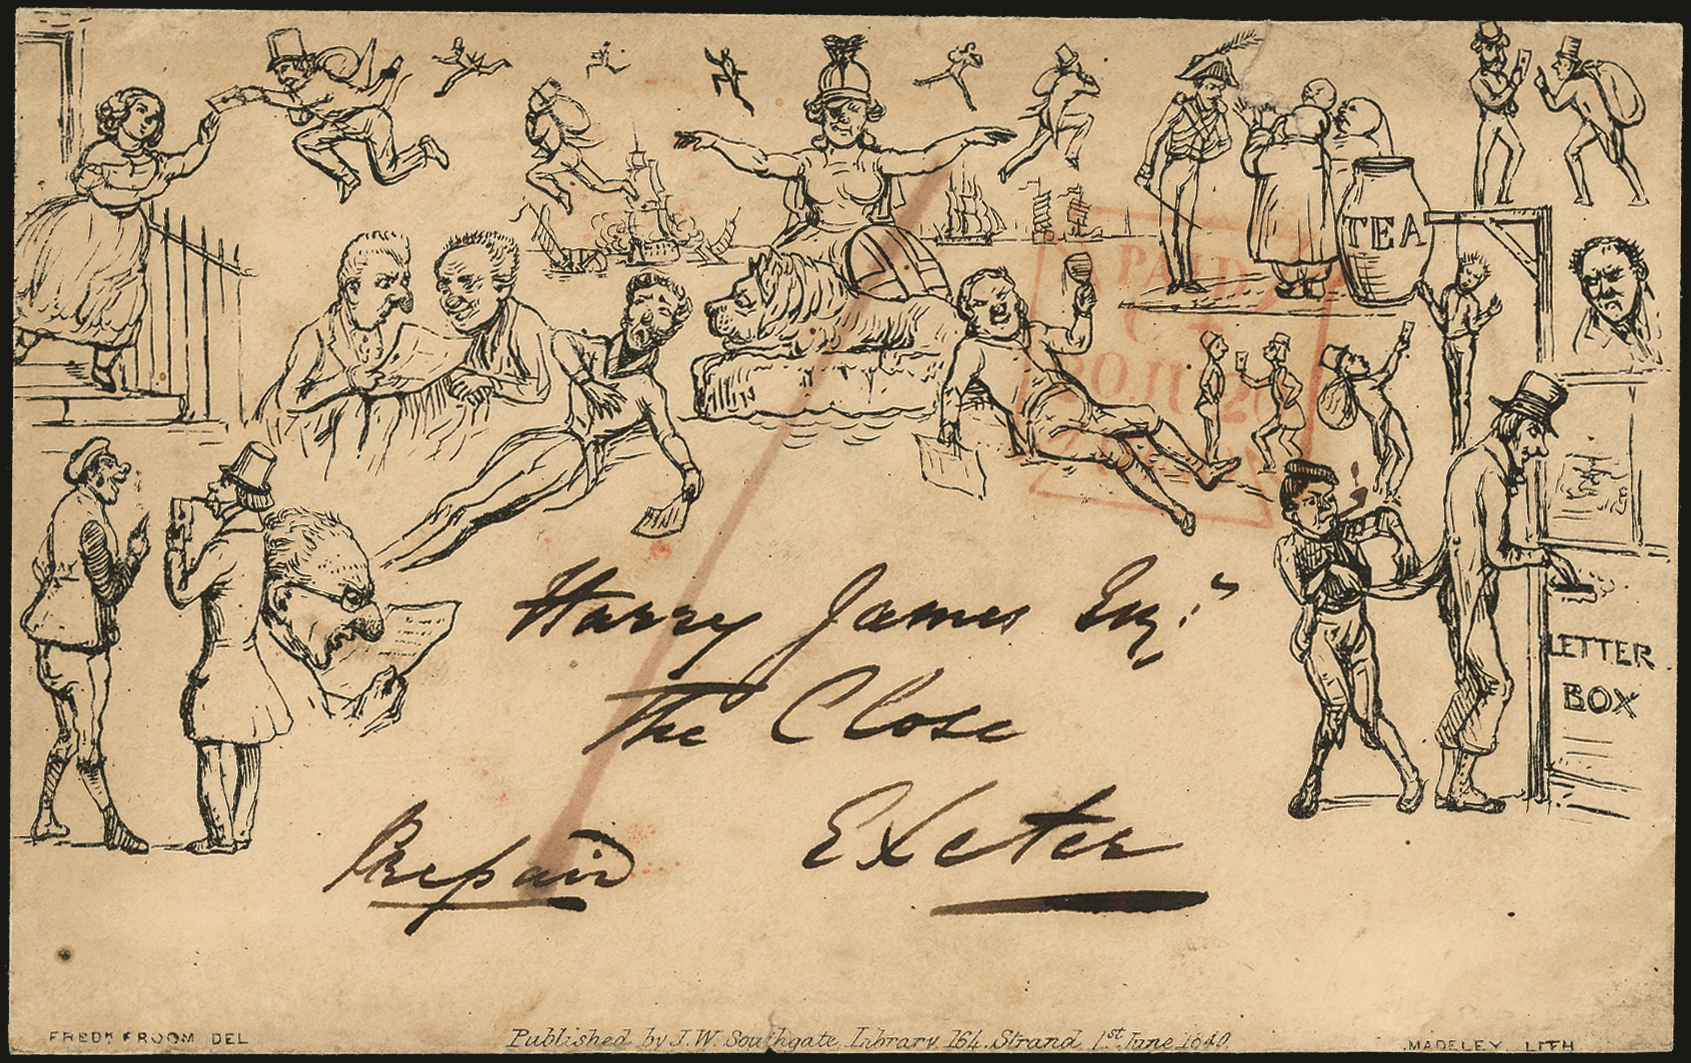 TEA
PAID
20 JU 20
LETTER
BOX
Harry James Esqr
The Close
Exeter
Prepaid
FREDK FROOM DEL
Published by J.W. Southgate Library 164. Strand 1st June 1840.
MADELEY LITH